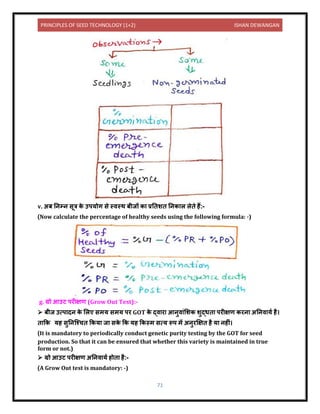 PRINCIPLES OF SEED TECHNOLOGY (1+2) ISHAN DEWANGAN
observations →
Some Some
Seedlings Non-germinated
Seeds
% Germination
% Pre-
emergence
death
% Post-
emergence
death
v. अब निम्न सूत्र के उपयोग से स्वस्थ बीजों का प्रतिशत निकाल लेते हैं:-
(Now calculate the percentage of healthy seeds using the following formula: -)
% of
Healthy = %G - (% PR + % PO)
Seeds
%G = % Germination
% PR = % Pre-emergence death
% PO = % Post-emergence death
g. ग्रो आउट परीक्षण (Grow Out Test):-
➢ बीज उत्पादन के लिए समय समय पर GOT के द्वारा आनुवांशिक शुद्धता परीक्षण करना अनिवार्य है।
ताकि यह सुनिश्चित किया जा सके कि यह किस्म सत्य रूप में अनुरक्षित है या नहीं।
(It is mandatory to periodically conduct genetic purity testing by the GOT for seed
production. So that it can be ensured that whether this variety is maintained in true
form or not.)
➢ ग्रो आउट परीक्षण अनिवार्य होता है:-
(A Grow Out test is mandatory: -)
71